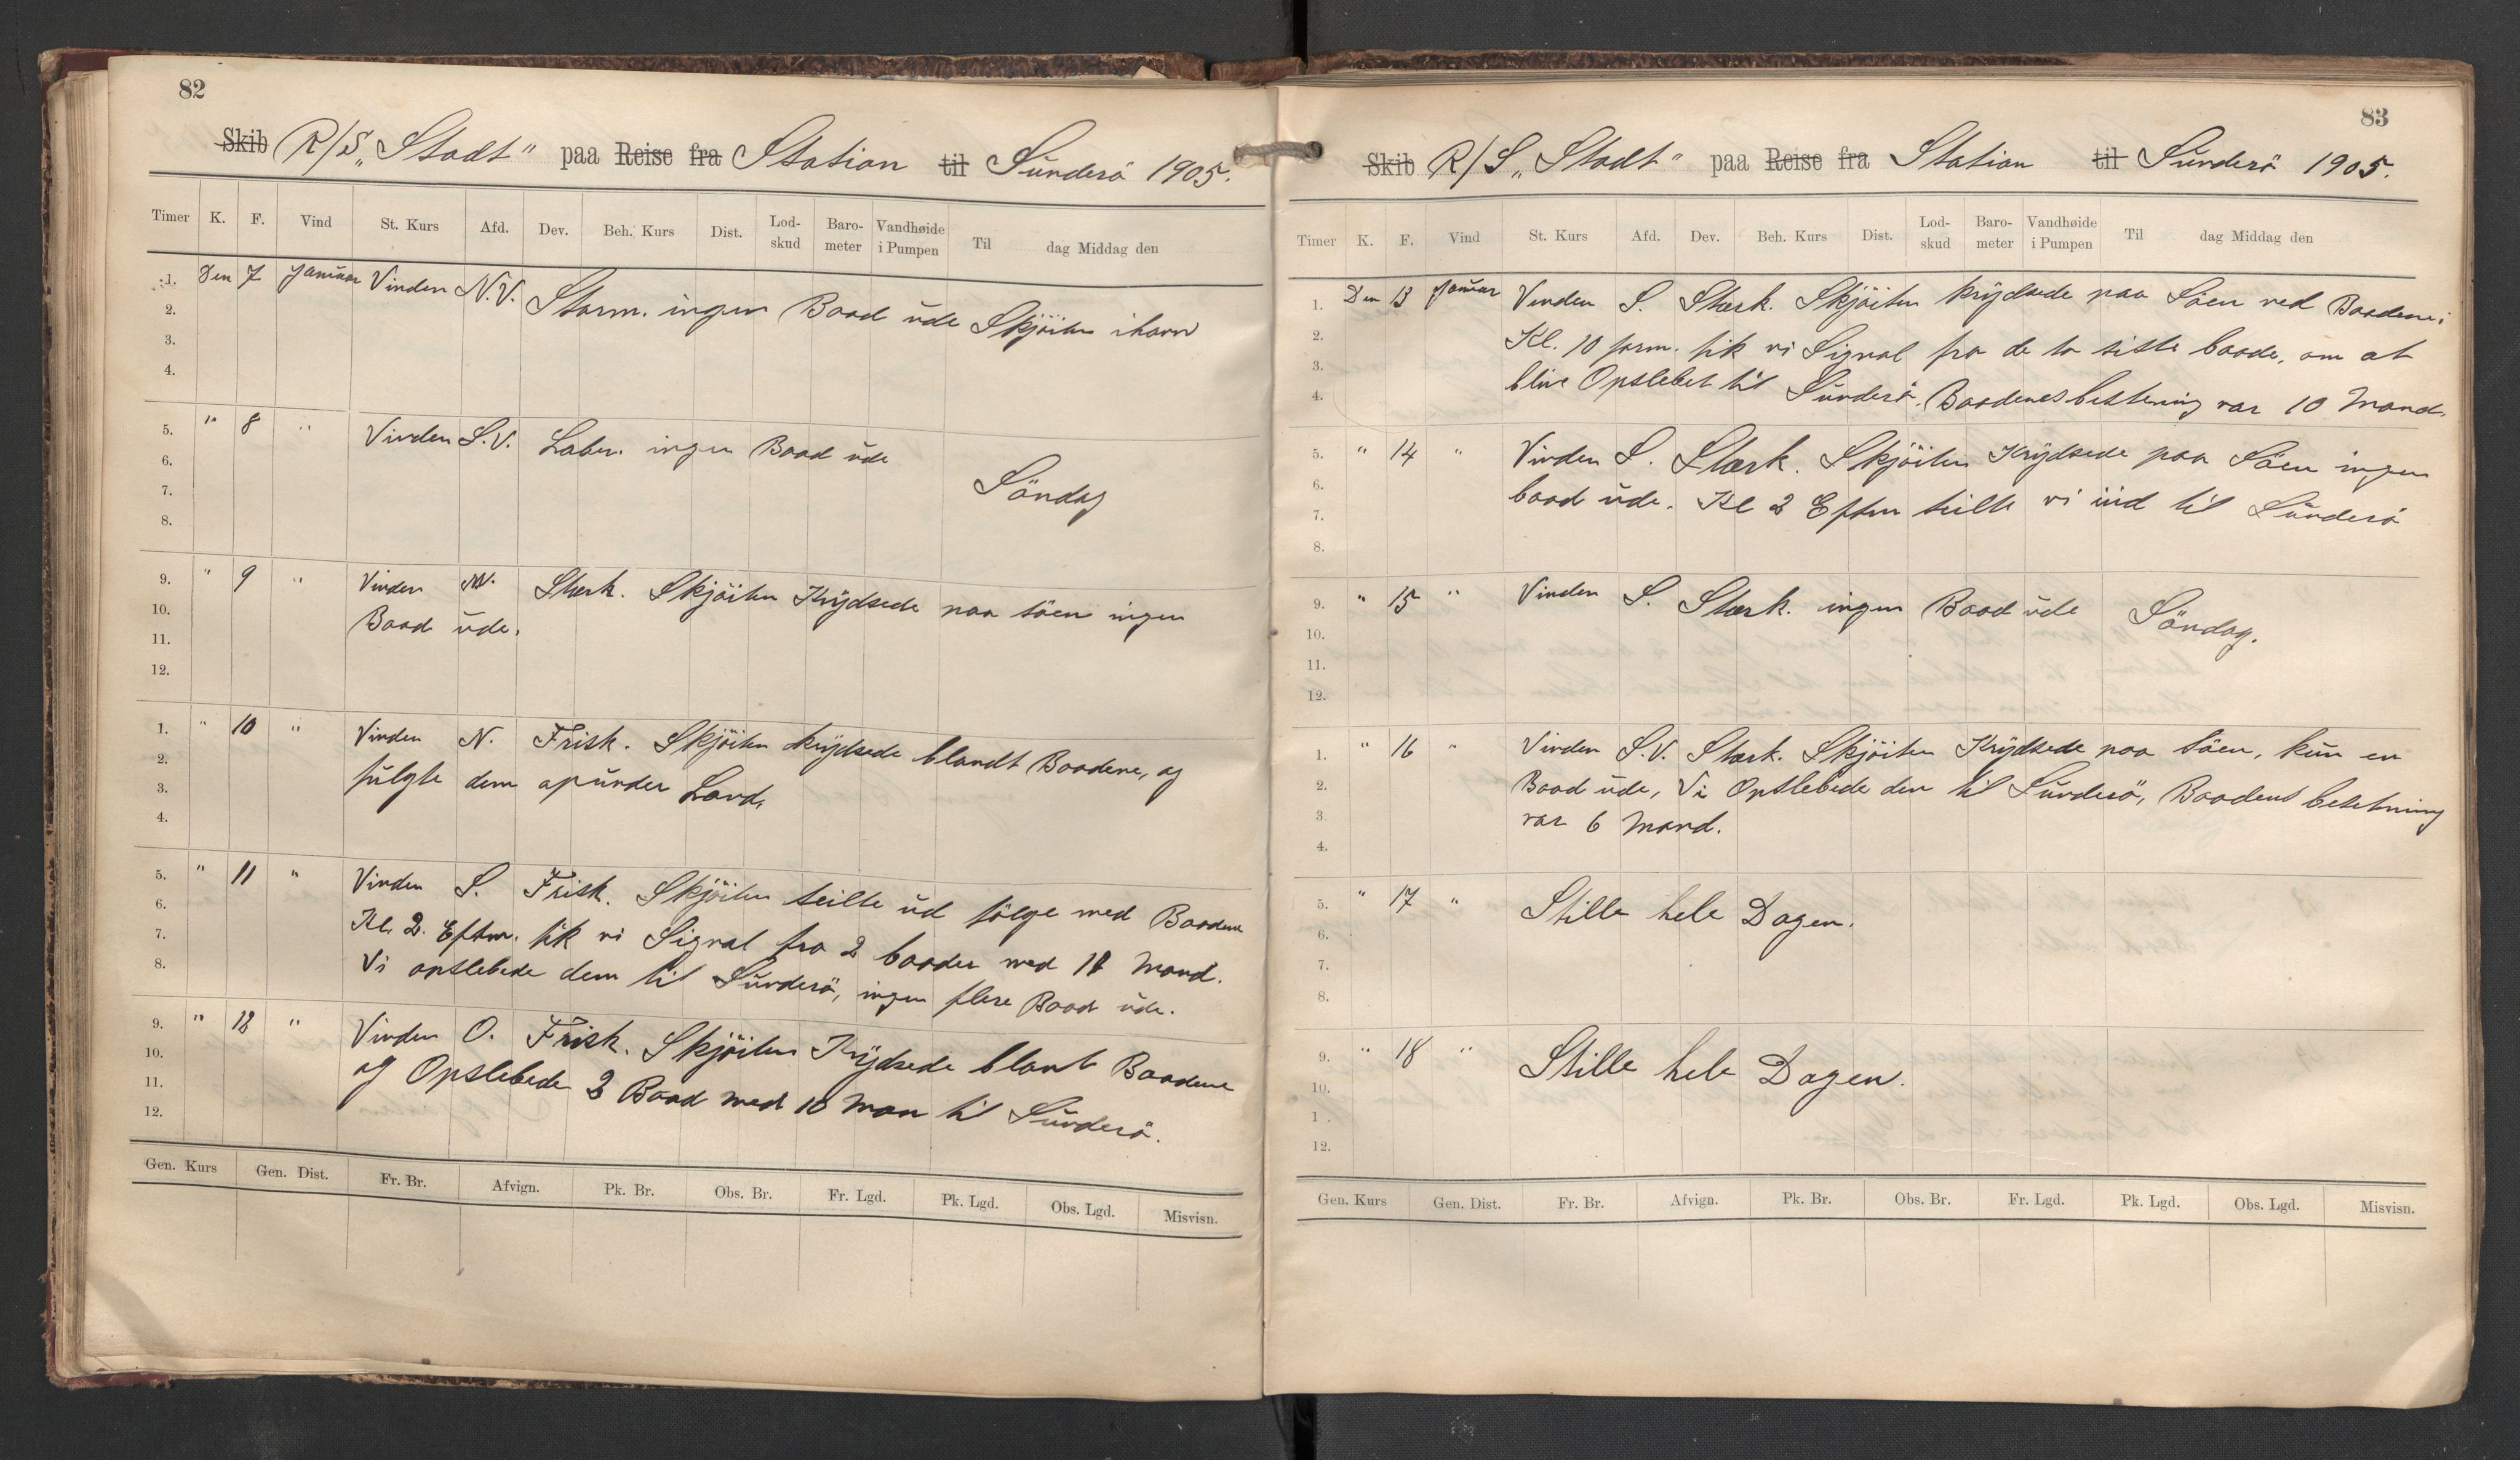 82
Skib R/S „Stadt" paa Reise fra Station til Sunderö 1905.
Timer K. F. Vind St. Kurs Afd. Dev. Beh. Kurs Dist. Lod-skud Baro-meter Vandhøide i Pumpen Til dag Middag den
1. Den 7 Januar Vinden N.V. Storm. ingen Baad ude Skjöiten ihavn
2.
3.
4.
5. " 8 " Vinden S.V. Laber. ingen Baad ude
6. Söndag
7.
8.
9. " 9 " Vinden NV. Stærk. Skjöiten Krydsede paa söen ingen
10. Baad ude.
11.
12.
1. " 10 " Vinden N. Frisk. Skjöiten krydsede blandt Baadene, og
2. fulgte dem opunder Land.
3.
4.
5. " 11 " Vinden S. Frisk. Skjöiten seilte ud fölge med Baadene
6. Kl. 2. Eftm. fik vi Signal fra 2 baade med 11 Mand.
7. Vi opslebede dem til Sunderö, ingen flere Baad ude.
8.
9. " 12 " Vinden O. Frisk. Skjöiten Krydsede blant Baadene
10. og Opslebede 2 Baad med 10 Man til Sunderö.
11.
12.
Gen. Kurs Gen. Dist. Fr. Br. Afvign. Pk. Br. Obs. Br. Fr. Lgd. Pk. Lgd. Obs. Lgd. Misvisn.
83
Skib R/S „Stadt" paa Reise fra Station til Sunderö 1905.
Timer K. F. Vind St. Kurs Afd. Dev. Beh. Kurs Dist. Lod-skud Baro-meter Vandhøide i Pumpen Til dag Middag den
1. Den 13 Januar Vinden S. Stærk. Skjöiten krydsede paa Söen ved Baadene.
2. Kl. 10 form. fik vi Signal fra de to siste baade, om at
3. blive Opslebet til Sunderö. Baadenes besetning var 10 Mand.
4.
5. " 14 " Vinden S. Stærk. Skjöiten Krydsede paa Söen ingen
6. baad ude. Kl 2 Eftm seilte vi ind til Sunderö
7.
8.
9. " 15 " Vinden S. Stærk. ingen Baad ude Söndag.
10.
11.
12.
1. " 16 " Vinden S.V. Stærk. Skjöiten Krydsede paa söen, kun en
2. Baad ude, Vi Opslebede den til Sunderö, Baadens besetning
3. var 6 Mand.
4.
5. " 17 " Stille hele Dagen.
6.
7.
8.
9. " 18 " Stille hele Dagen.
10.
1 .
12.
Gen. Kurs Gen. Dist. Fr. Br. Afvign. Pk. Br. Obs. Br. Fr. Lgd. Pk. Lgd. Obs. Lgd. Misvisn.